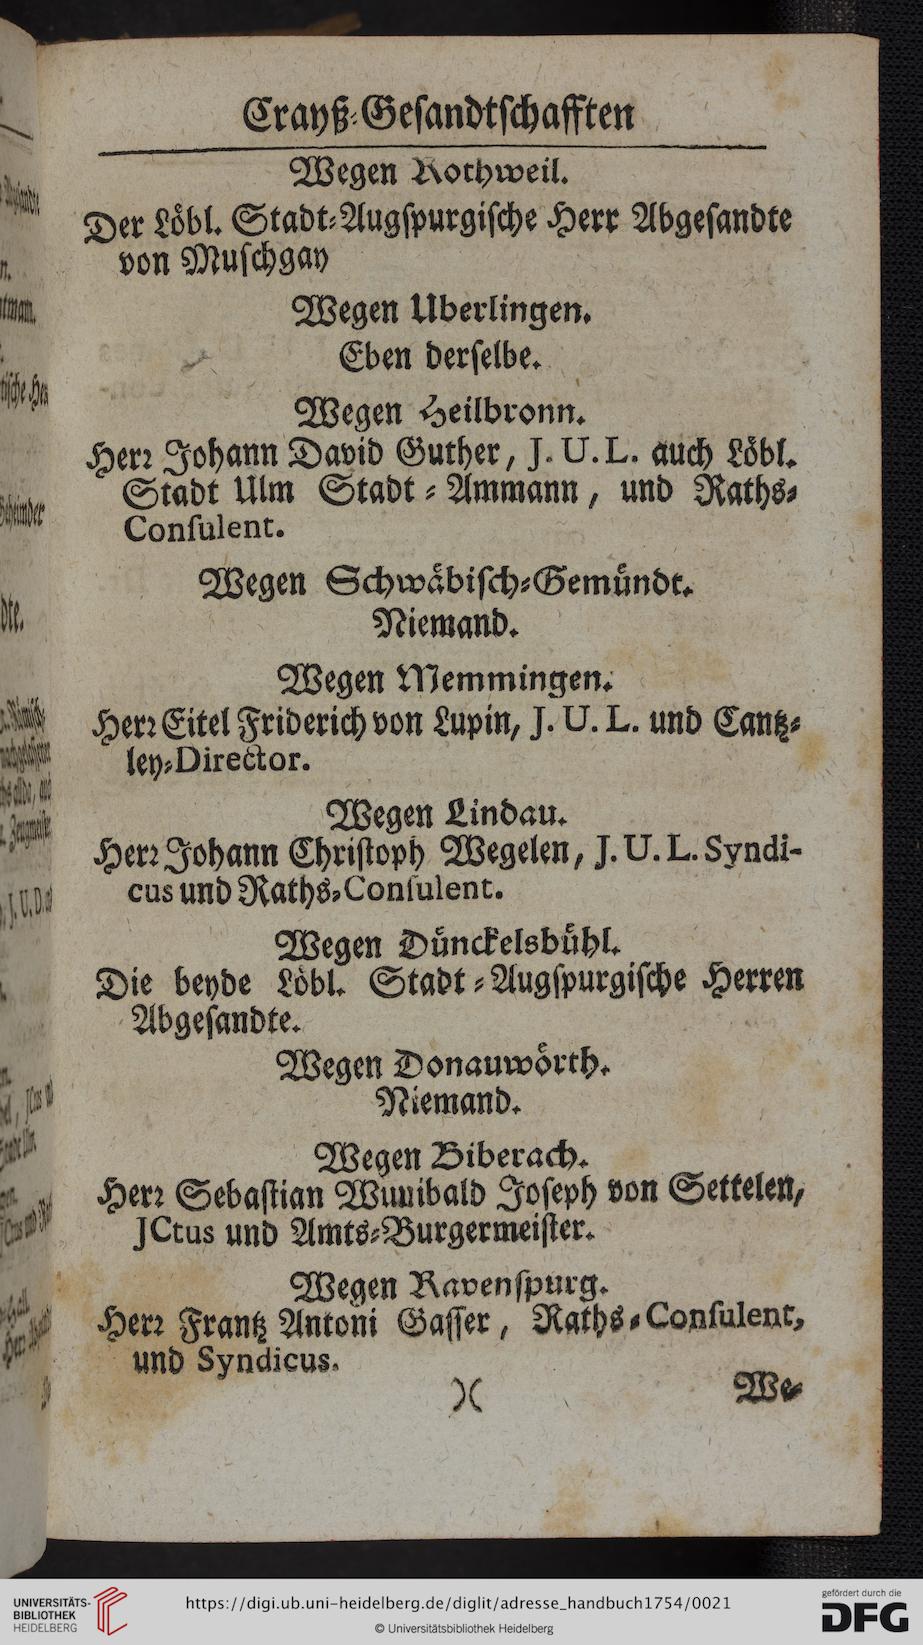 Crayß-Geſandtſchafften
Wegen Rothweil.
Der Löbl. Stadt-Augſpurgiſche Herr Abgeſandte
von Muſchgay
Wegen Uberlingen.
Eben derſelbe.
Wegen Heilbronn.
Herr Johann David Guther, J. U. L. auch Löbl.
Stadt Ulm Stadt-Ammann, und Raths-
Conſulent.
Wegen Schwäbiſch-Gemündt.
Niemand.
Wegen Memmingen.
Herr Eitel Friderich von Lupin, J. U. L. und Cantz-
ley-Director.
Wegen Lindau.
Herr Johann Chriſtoph Wegelen, J. U. L. Syndi-
cus und Raths-Conſulent.
Wegen Dünckelsbühl.
Die beyde Löbl. Stadt-Augſpurgiſche Herren
Abgeſandte.
Wegen Donauwörth.
Niemand.
Wegen Biberach.
Herr Sebaſtian Wunibald Joſeph von Settelen,
JCtus und Amts-Burgermeiſter.
Wegen Ravenſpurg.
Herr Frantz Antoni Gaſſer, Raths-Conſulent,
und Syndicus.
)( We-
UNIVERSITÄTS-
BIBLIOTHEK
HEIDELBERG
https://digi.ub.uni-heidelberg.de/diglit/adresse_handbuch1754/0021
© Universitätsbibliothek Heidelberg
gefördert durch die
DFG